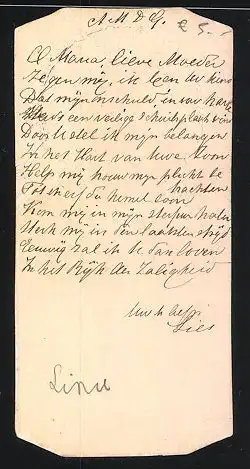 A M D G. € 5.-
O Maria, lieve Moeder
Zegen mij, ik ben uw kind
Dat mijn onschuld in uw hart
een veilige schuilplaats vind
Door U stel ik mijn belangen
In het Hart van Uwe Zoon
Help mij trouw mijn plicht be
trachten
Tot ik erf de hemel loon
Kom mij in mijn sterven
Sterk mij in den laatsten strijd
Eeuwig zal ik U dan loven
In het Rijk der Zaligheid
Uw
Lies